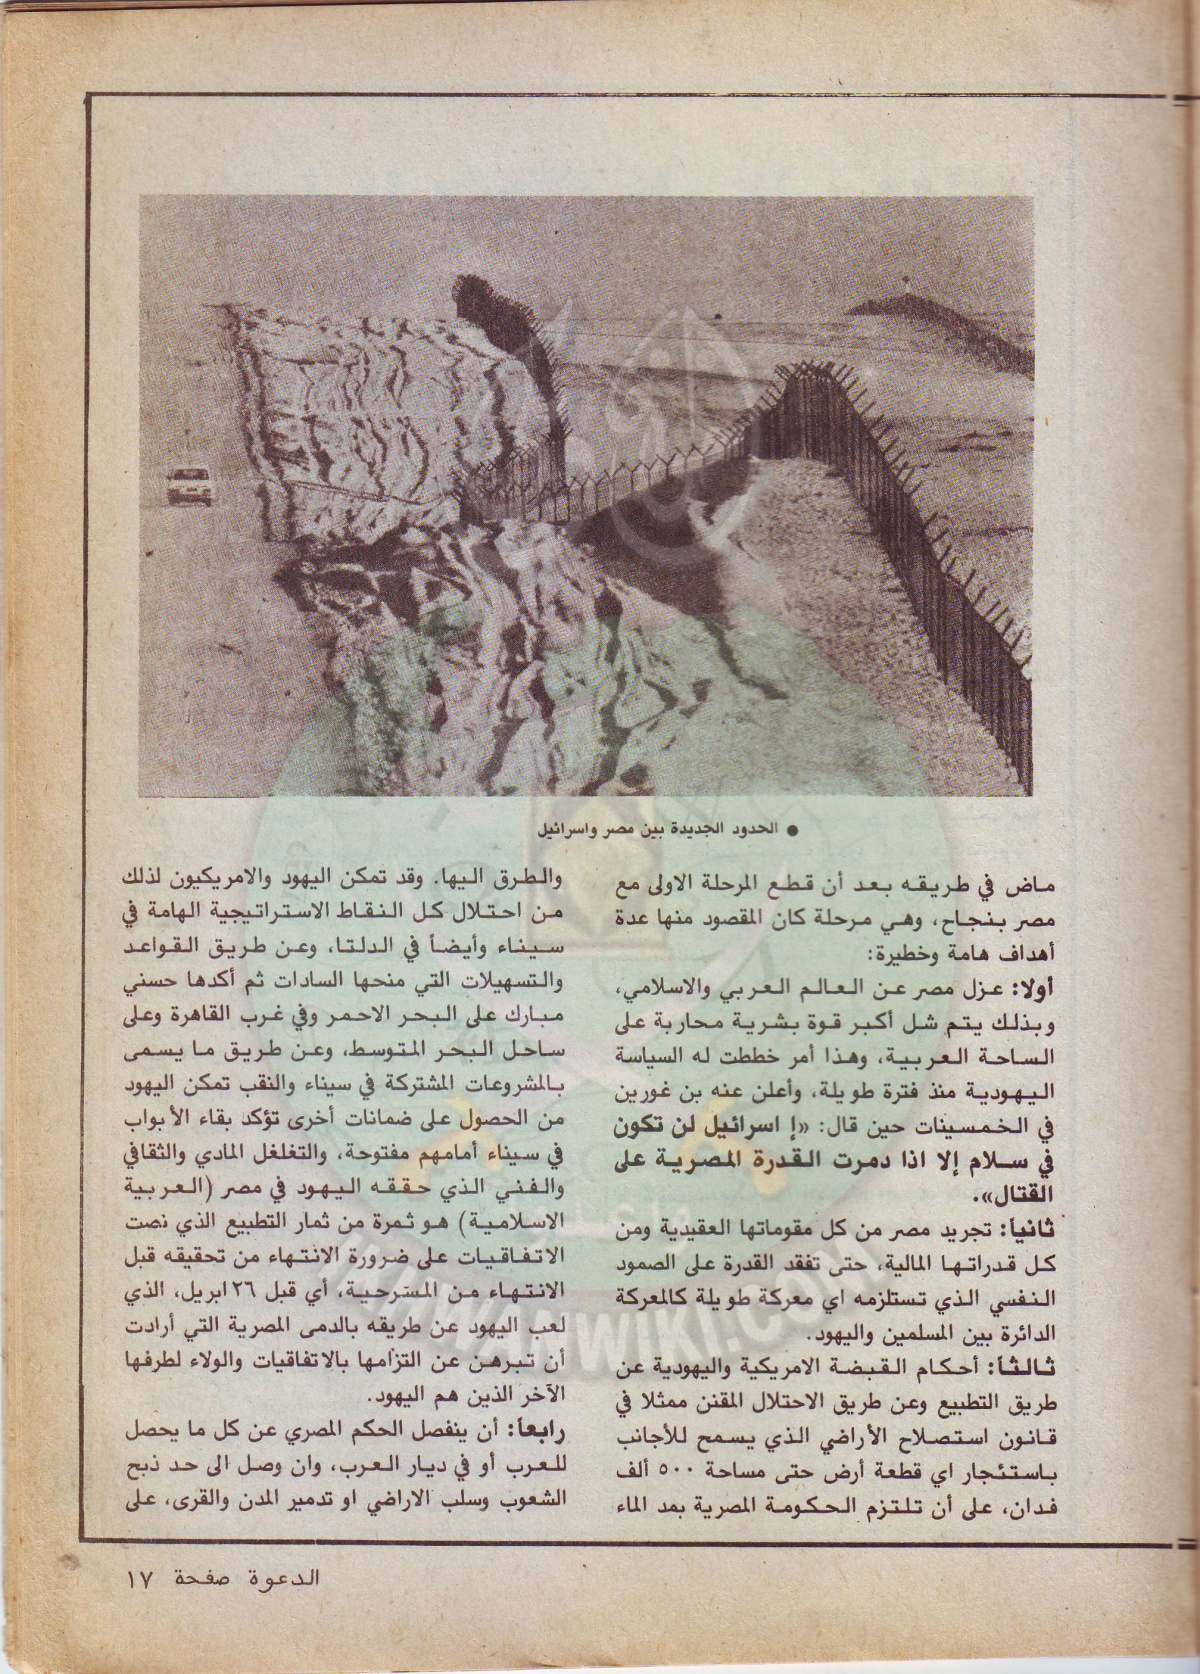 ● الحدود الجديدة بين مصر واسرائيل
ماض في طريقه بعد أن قطع المرحلة الاولى مع
مصر بنجاح، وهي مرحلة كان المقصود منها عدة
أهداف هامة وخطيرة:
أولا: عزل مصر عن العالم العربي والاسلامي،
وبذلك يتم شل أكبر قوة بشرية محاربة على
الساحة العربية، وهذا أمر خططت له السياسة
اليهودية منذ فترة طويلة، وأعلن عنه بن غورين
في الخمسينات حين قال: «إ اسرائيل لن تكون
في سلام إلا اذا دمرت القدرة المصرية على
القتال».
ثانياً: تجريد مصر من كل مقوماتها العقيدية ومن
كل قدراتها المالية، حتى تفقد القدرة على الصمود
النفسي الذي تستلزمه اي معركة طويلة كالمعركة
الدائرة بين المسلمين واليهود.
ثالثاً: أحكام القبضة الامريكية واليهودية عن
طريق التطبيع وعن طريق الاحتلال المقنن ممثلا في
قانون استصلاح الأراضي الذي يسمح للأجانب
باستئجار اي قطعة أرض حتى مساحة ٥٠٠ ألف
فدان، على أن تلتزم الحكومة المصرية بمد الماء
والطرق اليها. وقد تمكن اليهود والامريكيون لذلك
من احتلال كل النقاط الاستراتيجية الهامة في
سيناء وأيضاً في الدلتا، وعن طريق القواعد
والتسهيلات التي منحها السادات ثم أكدها حسني
مبارك على البحر الاحمر وفي غرب القاهرة وعلى
ساحل البحر المتوسط، وعن طريق ما يسمى
بالمشروعات المشتركة في سيناء والنقب تمكن اليهود
من الحصول على ضمانات أخرى تؤكد بقاء الأبواب
في سيناء أمامهم مفتوحة، والتغلغل المادي والثقافي
والفني الذي حققه اليهود في مصر (العربية
الاسلامية) هو ثمرة من ثمار التطبيع الذي نصت
الاتفاقيات على ضرورة الانتهاء من تحقيقه قبل
الانتهاء من المسرحية، أي قبل ٢٦ ابريل، الذي
لعب اليهود عن طريقه بالدمى المصرية التي أرادت
أن تبرهن عن التزامها بالاتفاقيات والولاء لطرفها
الآخر الذين هم اليهود.
رابعاً: أن ينفصل الحكم المصري عن كل ما يحصل
للعرب أو في ديار العرب، وان وصل الى حد ذبح
الشعوب وسلب الاراضي او تدمير المدن والقرى، على
الدعوة صفحة ١٧